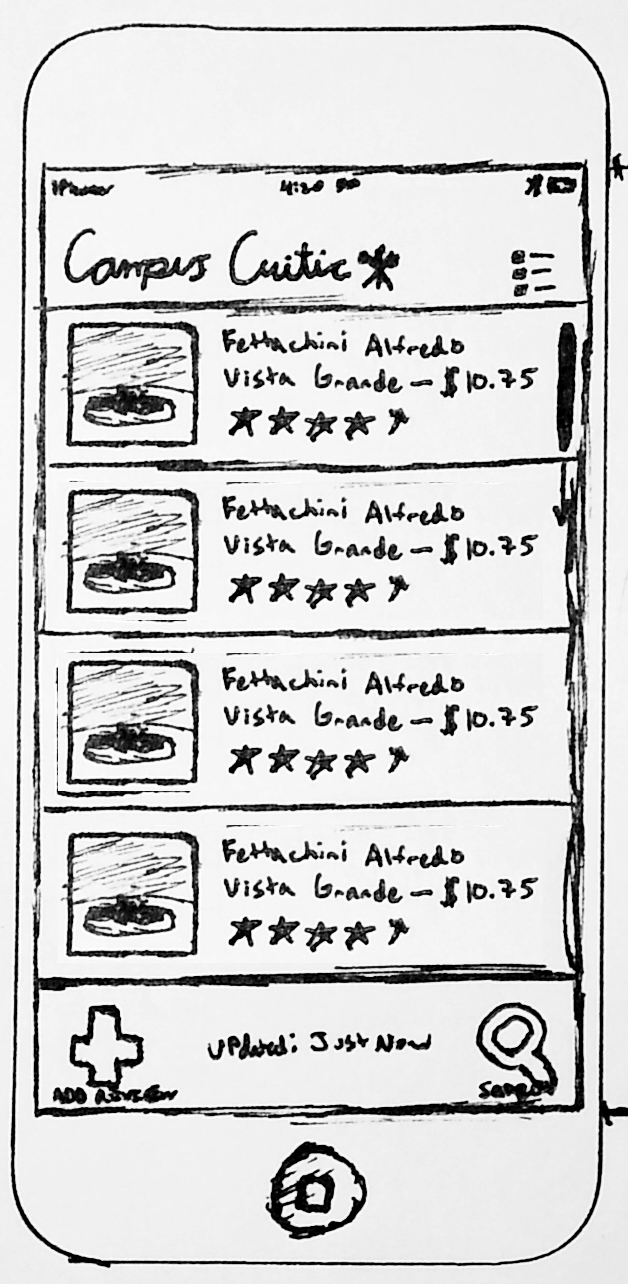 iPhone 4:20 PM
Campus Critic
Fettachini Alfredo
Vista Grande - $10.75
Fettachini Alfredo
Vista Grande - $10.75
Fettachini Alfredo
Vista Grande - $10.75
Fettachini Alfredo
Vista Grande - $10.75
UPdated: Just Now
ADD REVIEW
SEARCH